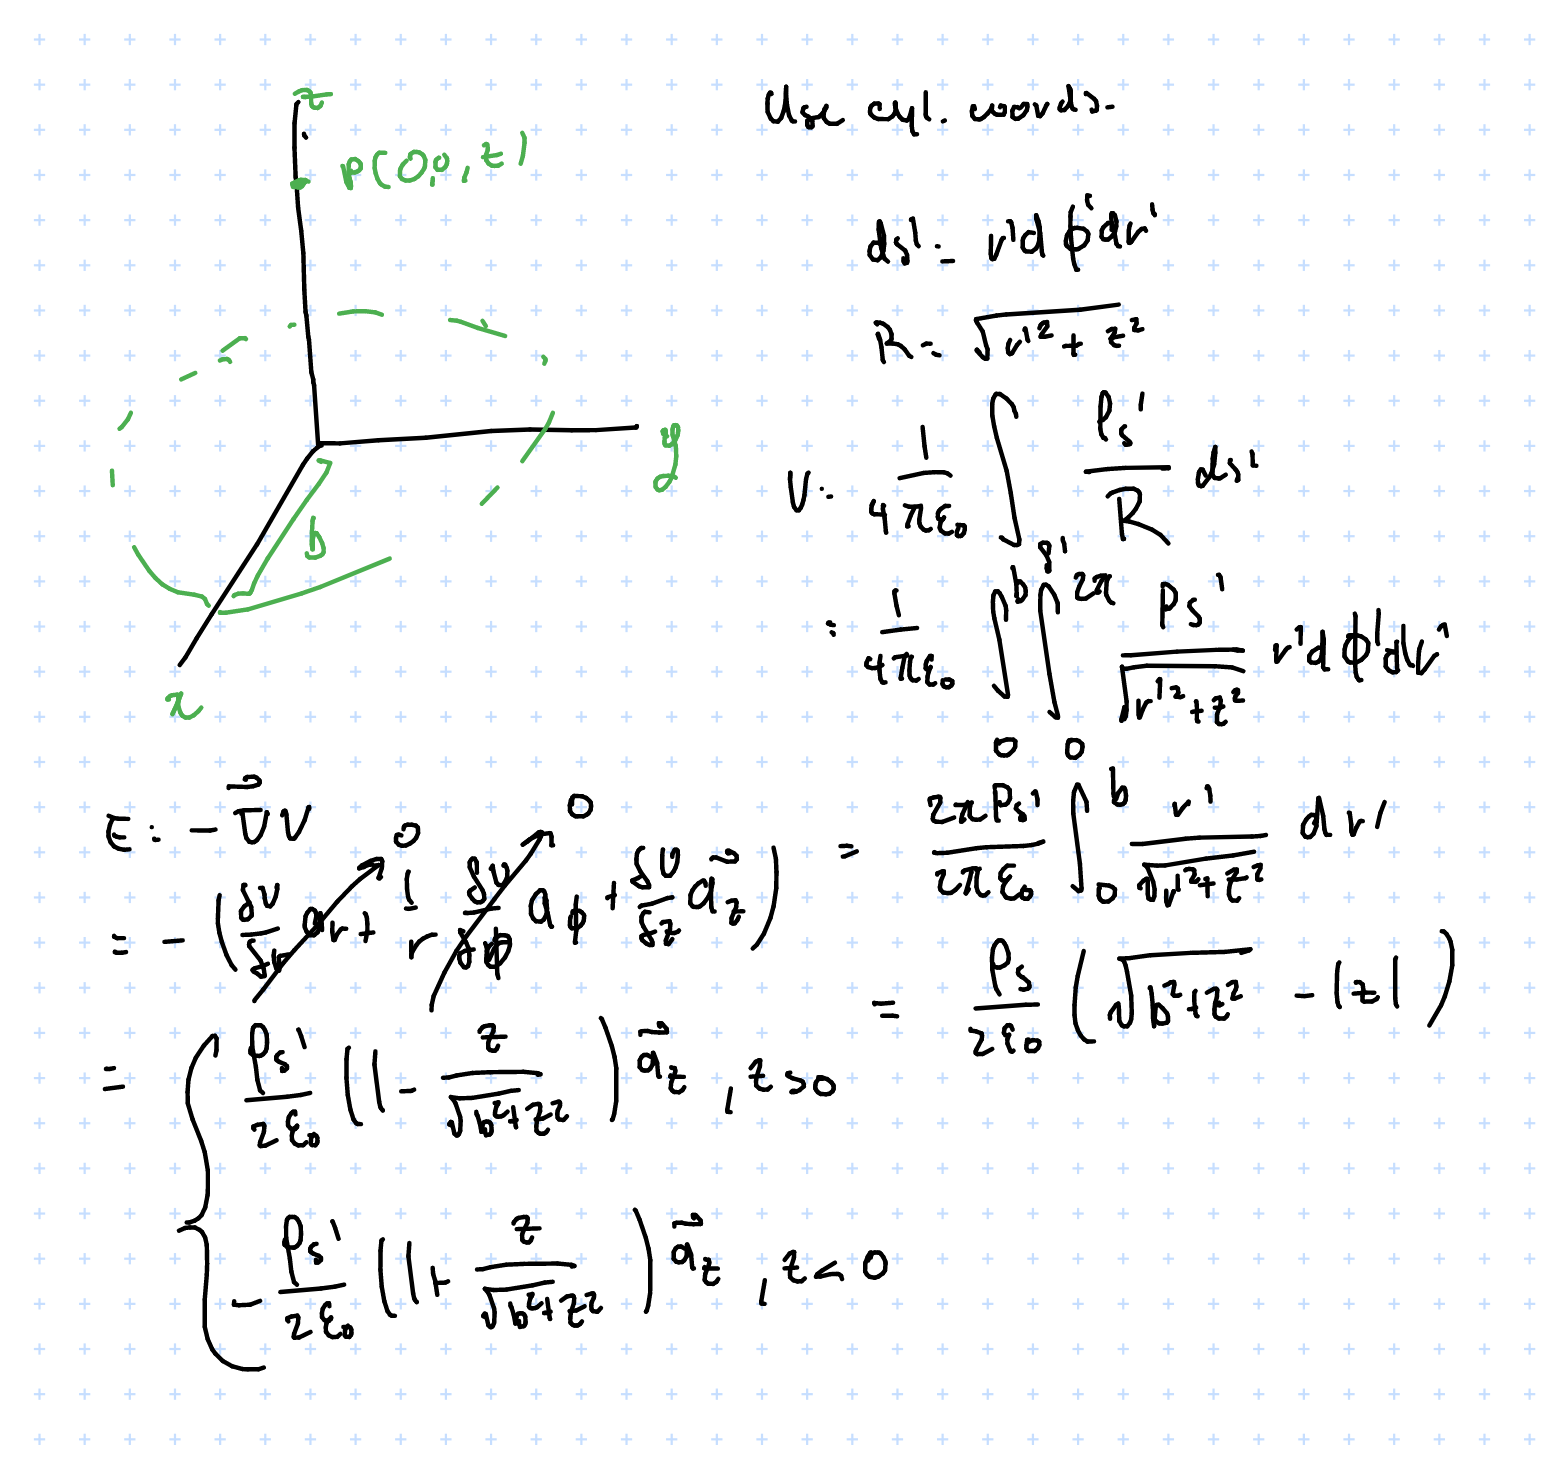 z
P(0,0,z)
y
b
x
Use cyl. coords.
ds' = r'dϕ'dr'
R = √(r'² + z²)
V = 1/(4πε₀) ∫_{s'} ρs'/R ds'
= 1/(4πε₀) ∫_0^b ∫_0^{2π} ρs'/√(r'²+z²) r'dϕ'dr'
= 2πρs'/(2πε₀) ∫_0^b r'/√(r'²+z²) dr'
= ρs/(2ε₀) (√(b²+z²) - |z|)
E = -∇⃗V
= -(δV/δr a_r + 1/r δV/δϕ a_ϕ + δV/δz a⃗_z)
0
0
= { ρs'/(2ε₀) (1 - z/√(b²+z²)) a⃗_z , z>0
-ρs'/(2ε₀) (1 + z/√(b²+z²)) a⃗_z , z<0